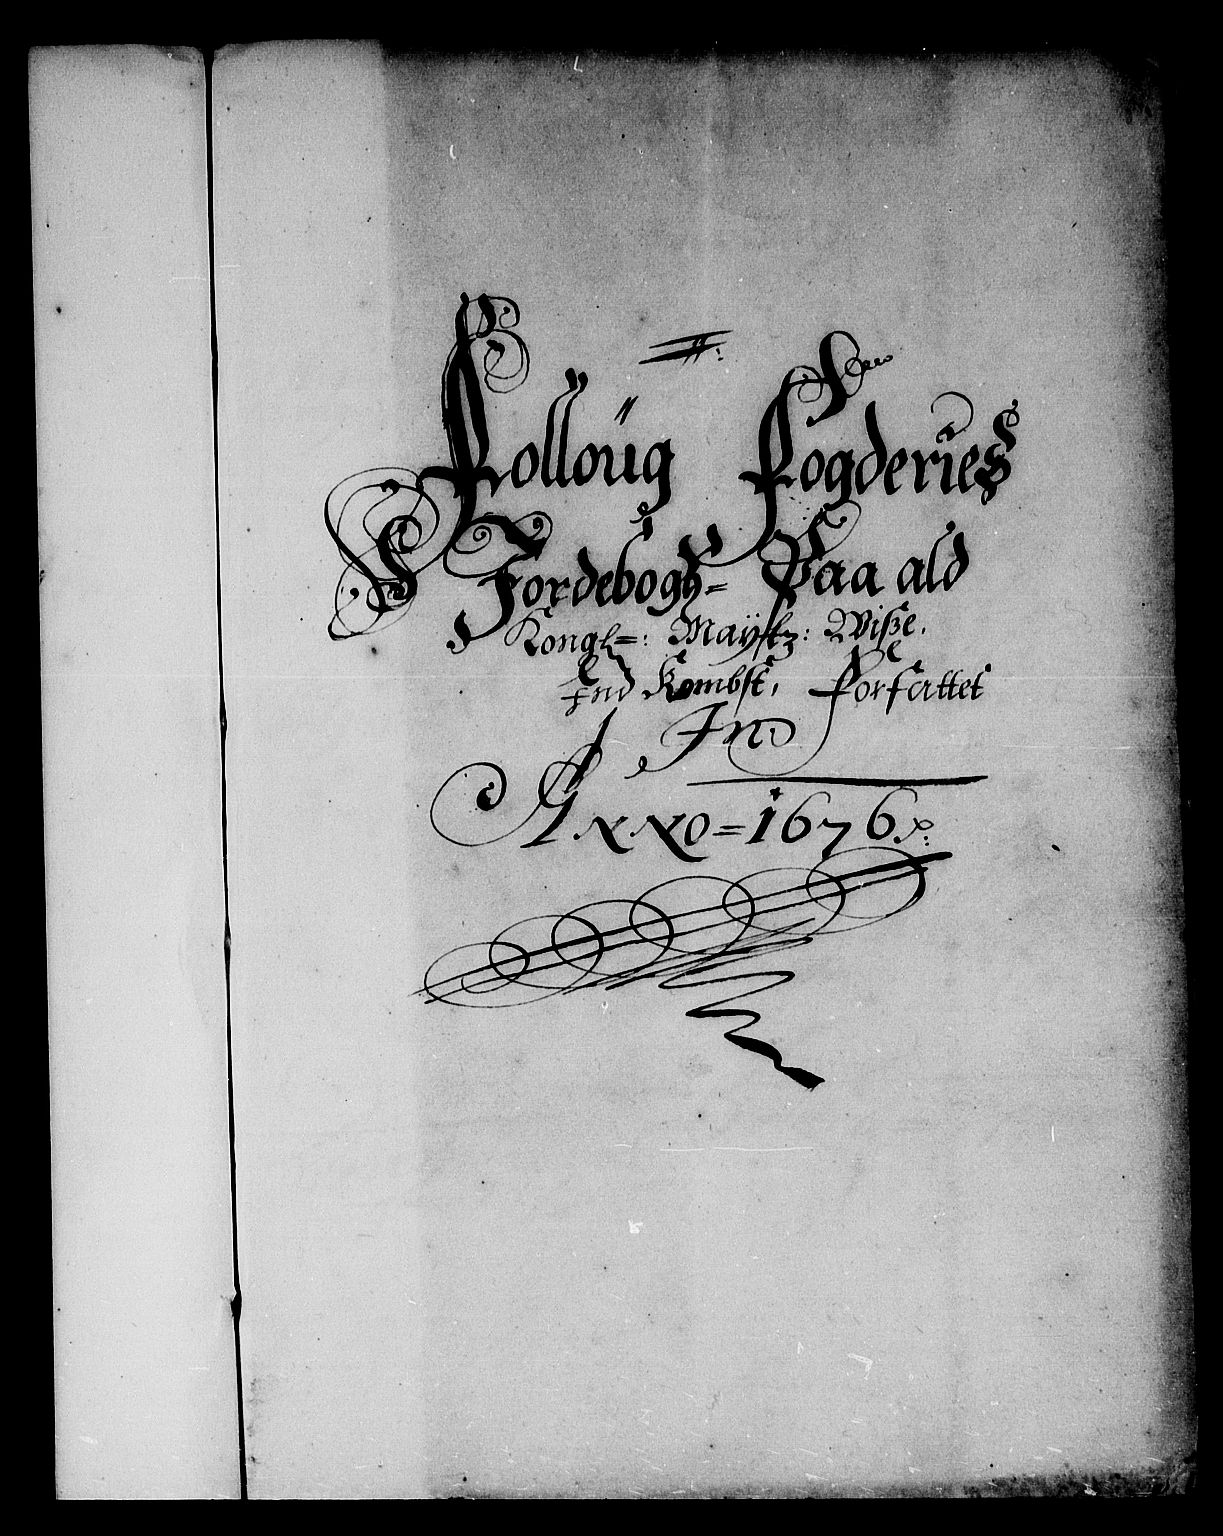 Folloüg Fogderies
Jordebogh= Paa ald
Kongl=: Mayſtz: Wiße.
Ind Kombſt, Forfattet
In
Anno=1676.